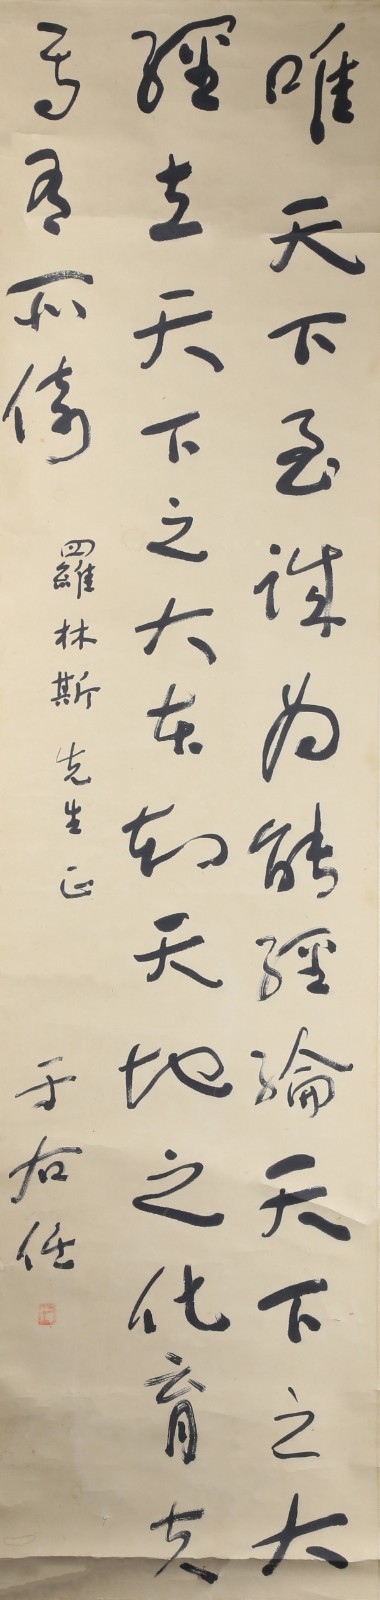 唯天下至誠為能經綸天下之大
經立天下之大本知天地之化育夫
焉有所倚
羅林斯先生正
于右任